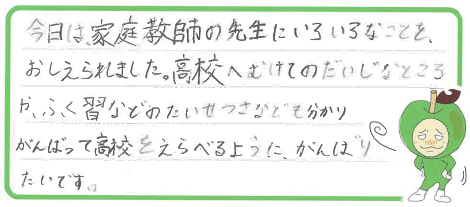 今日は、家庭教師の先生にいろいろなことを、
おしえられました。高校へむけてのだいじなところ
や、ふく習などのたいせつさなども分かり
がんばって高校をえらべるように、がんばり
たいです。